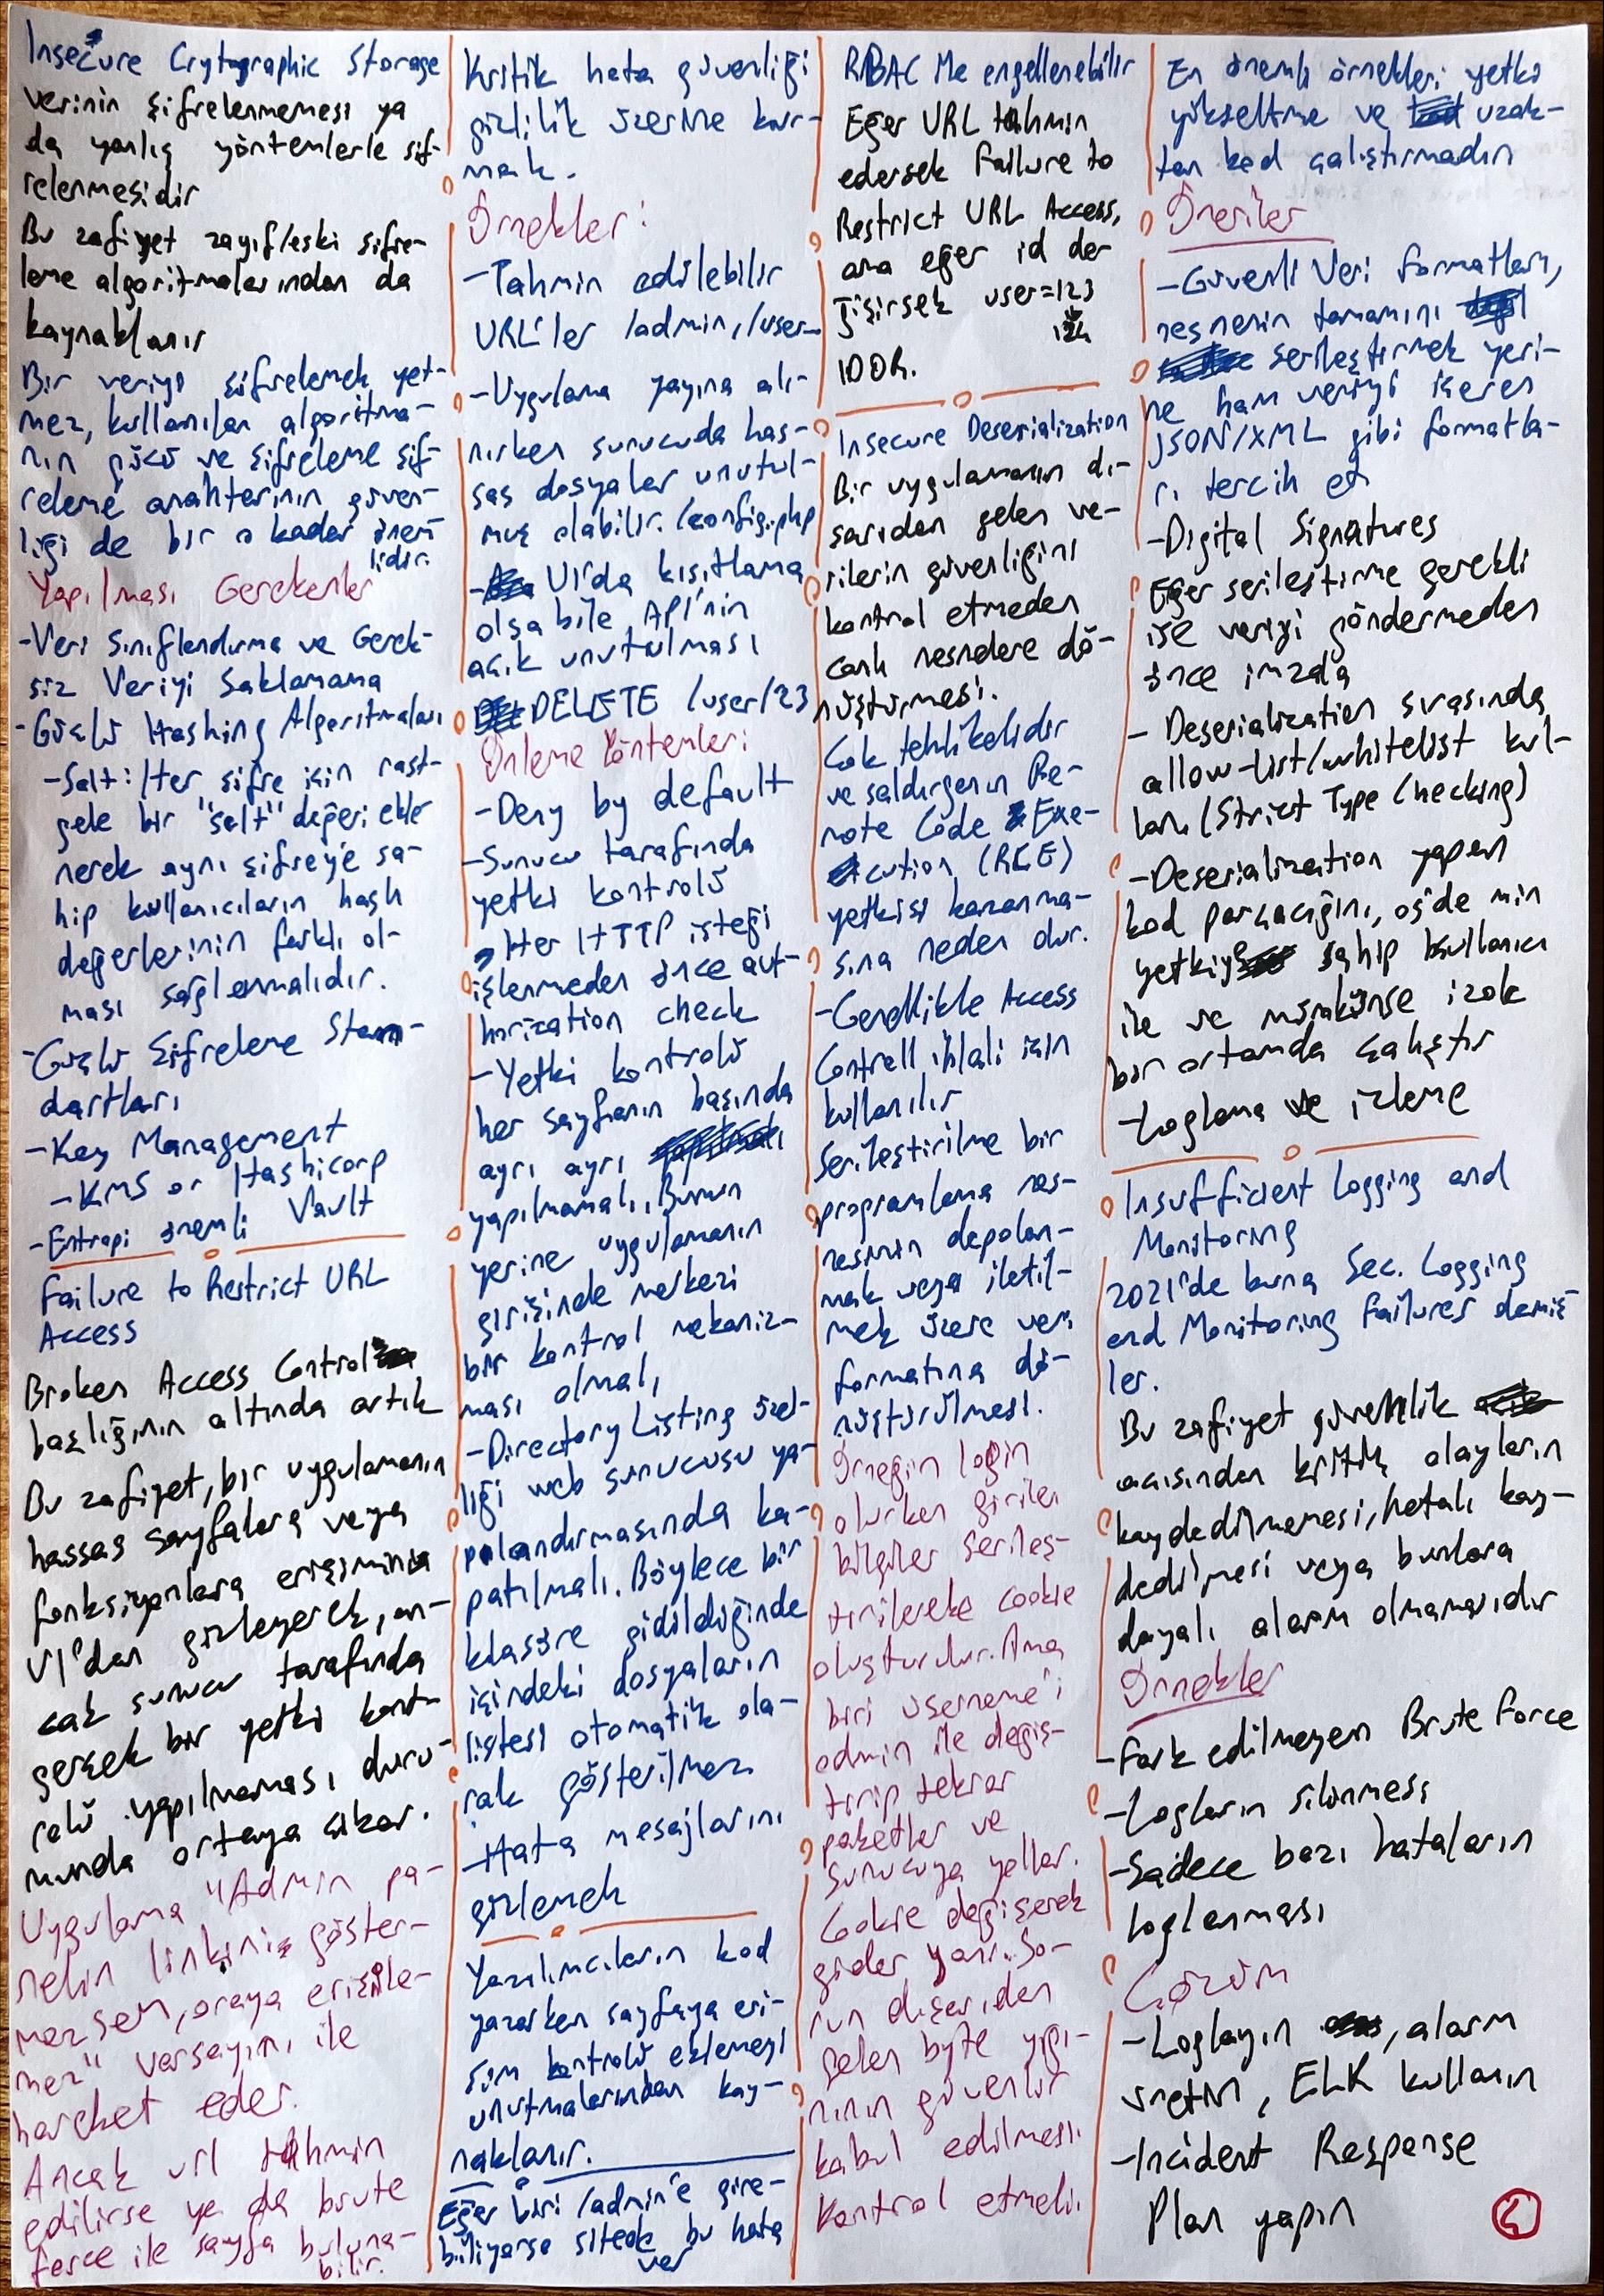 Insecure Crytographic Storage
verinin şifrelenmemesi ya
da yanlış yöntemlerle şif-
relenmesidir
Bu zafiyet zayıf/eski şifre-
leme algoritmalarından da
kaynaklanır
Bir veriyi şifrelemek yet-
mez, kullanılan algoritma-
nın gücü ve şifreleme şif-
releme anahtarının güven-
liği de bir o kadar önem
lidir.
Yapılması Gerekenler
-Veri Sınıflandırma ve Gerek-
siz Veriyi Saklamama
-Güçlü Hashing Algoritmaları
-Salt: Her şifre için rast-
gele bir "salt" değeri ekle
nerek aynı şifreye sa-
hip kullanıcıların hash
değerlerinin farklı ol-
ması sağlanmalıdır.
-Güçlü Şifreleme Stan-
dartları
-Key Management
-KMS or Hashicorp
Vault
-Entropi önemli
Failure to Restrict URL
Access
Broken Access Control
başlığının altında artık
Bu zafiyet, bir uygulamanın
hassas sayfalara veya
fonksiyonlara erişimini
UI'dan gizleyerek, an-
cak sunucu tarafında
gerçek bir yetki kont-
rolü yapılmaması duru-
munda ortaya çıkar.
Uygulama "Admin pa-
nelin linkini göster-
mezsem, oraya erişile-
mez" varsayımı ile
hareket eder.
Ancak url tahmin
edilirse ya da brute
force ile sayfa buluna-
bilir.
Kritik hata güvenliği
gizlilik üzerine kur-
mak.
Örnekler:
-Tahmin edilebilir
URL'ler /admin, /user
-Uygulama yayına alı-
nırken sunucuda has-
sas dosyalar unutul-
muş olabilir. /config.php
- UI'da kısıtlama
olsa bile API'nin
açık unutulması
DELETE /user/23
Önleme Yöntemleri
-Deny by default
-Sunucu tarafında
yetki kontrolü
→Her HTTP isteği
işlenmeden önce aut-
horization check
-Yetki kontrolü
her sayfanın başında
ayrı ayrı
yapılmamalı, Bunun
yerine uygulamanın
girişinde merkezi
bir kontrol mekaniz-
ması olmalı
-Directory Listing özel-
liği web sunucusu ya-
pılandırmasında ka-
patılmalı. Böylece bir
klasöre gidildiğinde
içindeki dosyaların
listesi otomatik ola-
rak gösterilmez
-Hata mesajlarını
gizlemek
Yazılımcıların kod
yazarken sayfaya eri-
şim kontrolü eklemeyi
unutmalarından kay-
naklanır.
Eğer biri /admin'e gire-
biliyorsa sitede bu hata
var
RBAC ile engellenebilir
Eğer URL tahmin
edersek Failure to
Restrict URL Access,
ama eğer id de
ğişirsek user=123
↓
124
IDOR.
Insecure Deserialization
Bir uygulamanın dı-
şarıdan gelen ve-
rilerin güvenliğini
kontrol etmeden
canlı nesnelere dö-
nüştürmesi.
Çok tehlikelidir
ve saldırganın Re-
mote Code Exe-
cution (RCE)
yetkisi kazanma-
sına neden olur.
-Genellikle Access
Controll ihlali için
kullanılır
Serileştirilme bir
programlama nes-
nesinin depolan-
mak veya iletil-
mek üzere veri
formatına dö-
nüştürülmesi.
Örneğin login
olurken girilen
bilgiler serileş-
tirilerek cookie
oluşturulur. Ama
biri username'i
admin ile değiş-
tirip tekrar
paketler ve
sunucuya yollar.
Cookie değişerek
gider yani. So-
run dışarıdan
gelen byte yığı-
nının güvenlir
kabul edilmesi.
Kontrol etmeli.
En önemli örnekleri yetki
yükseltme ve uzak-
tan kod çalıştırmadın
Öneriler
-Güvenli Veri Formatları,
nesnenin tamamını
serileştirmek yeri-
ne ham veriyi içeren
JSON/XML gibi formatla-
rı tercih et
-Digital Signatures
Eğer serileştirme gerekli
ise veriyi göndermeden
önce imzala
- Deserialization sırasında
allow-list/whitelist kul-
lan. (Strict Type Checking)
-Deserialization yapan
kod parçacığını, os'de min
yetkiye sahip kullanıcı
ile ve mümkünse izole
bir ortamda çalıştır
-Loglama ve izleme
Insufficient Logging and
Monitoring
2021'de buna Sec. Logging
and Monitoring Failures demiş
ler.
Bu zafiyet güvenlik
açısından kritik olayların
kaydedilmemesi, hatalı kay-
dedilmesi veya bunlara
dayalı alarm olmamasıdır
Örnekler
-Fark edilmeyen Brute Force
-Logların silinmesi
-Sadece bazı hataların
loglanması
Çözüm
-Loglayın , alarm
üretin, ELK kullanın
-Incident Response
Plan yapın